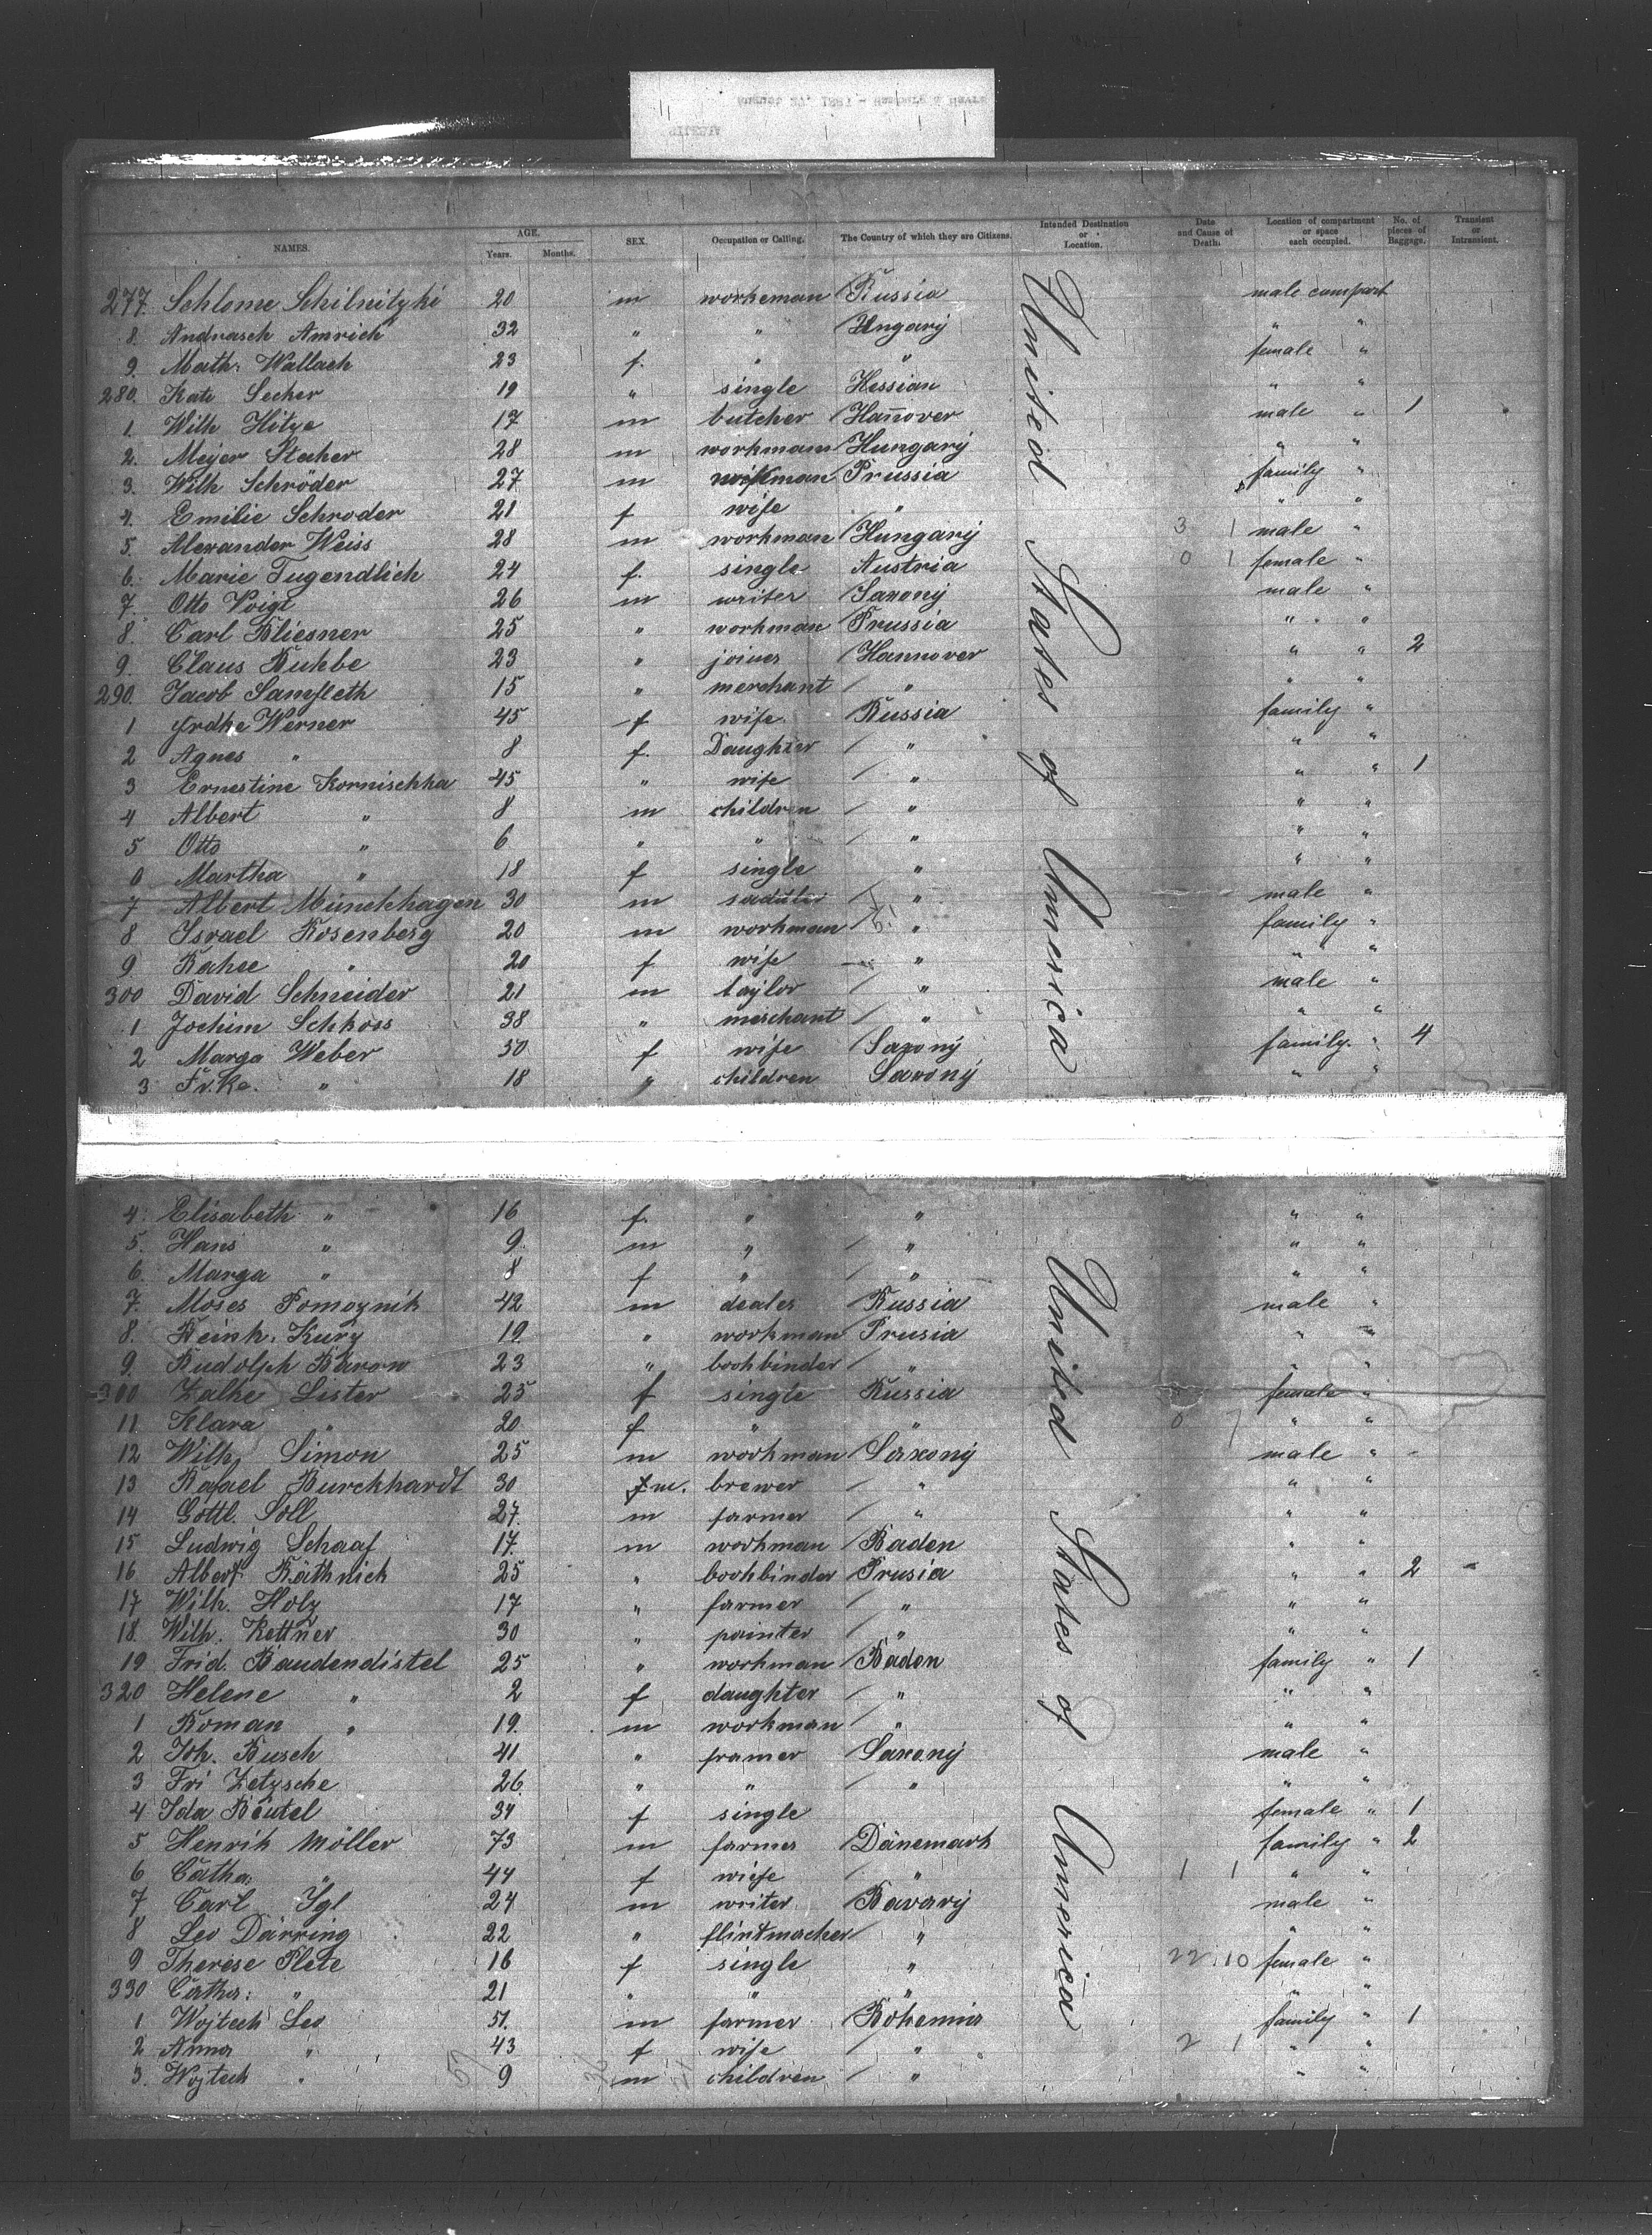 NAMES. AGE. Years. Months. SEX. Occupation or Calling. The Country of which they are Citizens. Intended Destination or Location. Date and Cause of Death. Location of compartment or space each occupied. No. of pieces of Baggage. Transient or Intransient.
277. Schlome Schilnitzki 20 m workeman Russia male compart
8. Andrasch Amrich 32 " " Ungary " "
9. Math: Wallach 23 f. " " female "
280. Kate Secher 19 " single Hessian " "
1. Wilh Hitze 17 m butcher Hañover male " 1
2. Meyer Stecher 28 m workmam Hungary " "
3. Wilh Schröder 27 m workman Prussia family "
4. Emilie Schroder 21 f wife " " "
5. Alexander Weiss 28 m workman Hungary 3 1 male "
6. Marie Tugendlich 24 f. single Austria 0 1 female "
7. Otto Voigt 26 m writer Saxony male "
8. Carl Bliesner 25 " workman Prussia " "
9. Claus Bukbe 23 " joiner Hannover " " 2
290. Jacob Samfleth 15 " merchant " " "
1 Werner 45 f wife Russia family "
2 Agnes " 8 f. Daughter " " "
3 Ernestine Kornischka 45 " wife " " " 1
4 Albert " 8 m children " " "
5 Otto " 6 " " " " "
6 Martha " 18 f single " " "
7 Albert Münchhagen 30 m " male "
8 Israel Rosenberg 20 m workman " family "
9 Rahee " 20 f wife " " "
300 David Schneider 21 m taylor " male "
1 Jochim Schkoss 38 " merchant " " "
2 Marga Weber 50 f wife Saxony family. " 4
3 Fr.ke. " 18 " children Saxony " "
United States of America
4. Elisabeth " 16 f. " " " "
5. Hans " 9 m " " " "
6. Marga " 8 f " " " "
7. Moses Pomoznik 42 m dealer Russia male "
8. Heinh. Kurz 19 " workman Prusia " "
9. Rudolph Baron 23 " bookbinder " " "
300 Zalke Lister 25 f single Russia female "
11. Klara " 20 f " " 0 7 " "
12 Wilh. Simon 25 m workman Saxony male "
13 Rafael Burckhardt 30 m. brewer " " "
14 Gottl. Söll 27. m farmer " " "
15 Ludwig Schaaf 17. m workman Baden " "
16 Albert Räthnick 25 " bookbinder Prusia " " 2
17 Wilh. Holz 17 " farmer " " "
18. Wilh. Kettner 30 " painter " " "
19 Frid. Baudendistel 25 " workman Baden family " 1
320 Helene " 2 f daughter " " "
1 Roman " 19. m workman " " "
2 Joh. Busch 41 " framer Saxony male "
3 Fri Zetzsche 26 " " " " "
4 Ida Beutel 34 f single female " 1
5 Henrik Möller 73 m farmer Dänemark family " 2
6 Catha: " 44 f wiefe " 1 1 " "
7 Carl Igl 24 m writer Bavary male "
8 Leo Därring 22 " flintmacher " " "
9 Therese Plete 16 f single " 22 10 female "
330 Catha: " 21 " " " " "
1 Wojtech Leo 51. m farmer Bohemia family " 1
2 Anna " 43 f wife " 2 1 " "
3. Wojtech " 9 m children " " "
United States of America